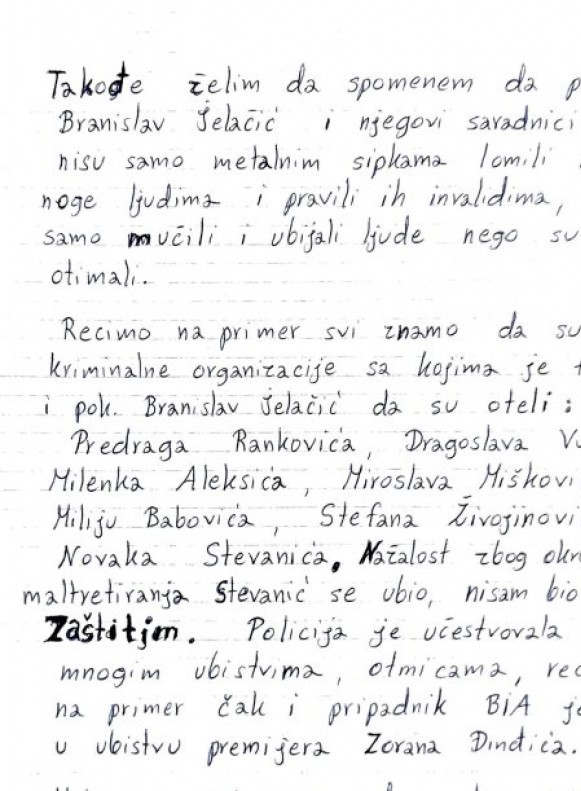 Takođe želim da spomenem da p
Branislav Jelačić i njegovi saradnici
nisu samo metalnim šipkama lomili
noge ljudima i pravili ih invalidima,
samo mučili i ubijali ljude nego su
otimali.
Recimo na primer svi znamo da su
kriminalne organizacije sa kojima je
i pok. Branislav Jelačić da su oteli:
Predraga Rankovića, Dragoslava Vu
Milenka Aleksića, Miroslava Miškovi
Miliju Babovića, Stefana Živojinovi
Novaka Stevanića. Nažalost zbog okr
maltretiranja Stevanić se ubio, nisam bio
Zaštitjen. Policija je učestvovala
mnogim ubistvima, otmicama, rec
na primer čak i pripadnik BIA je
u ubistvu premijera Zorana Đinđića.